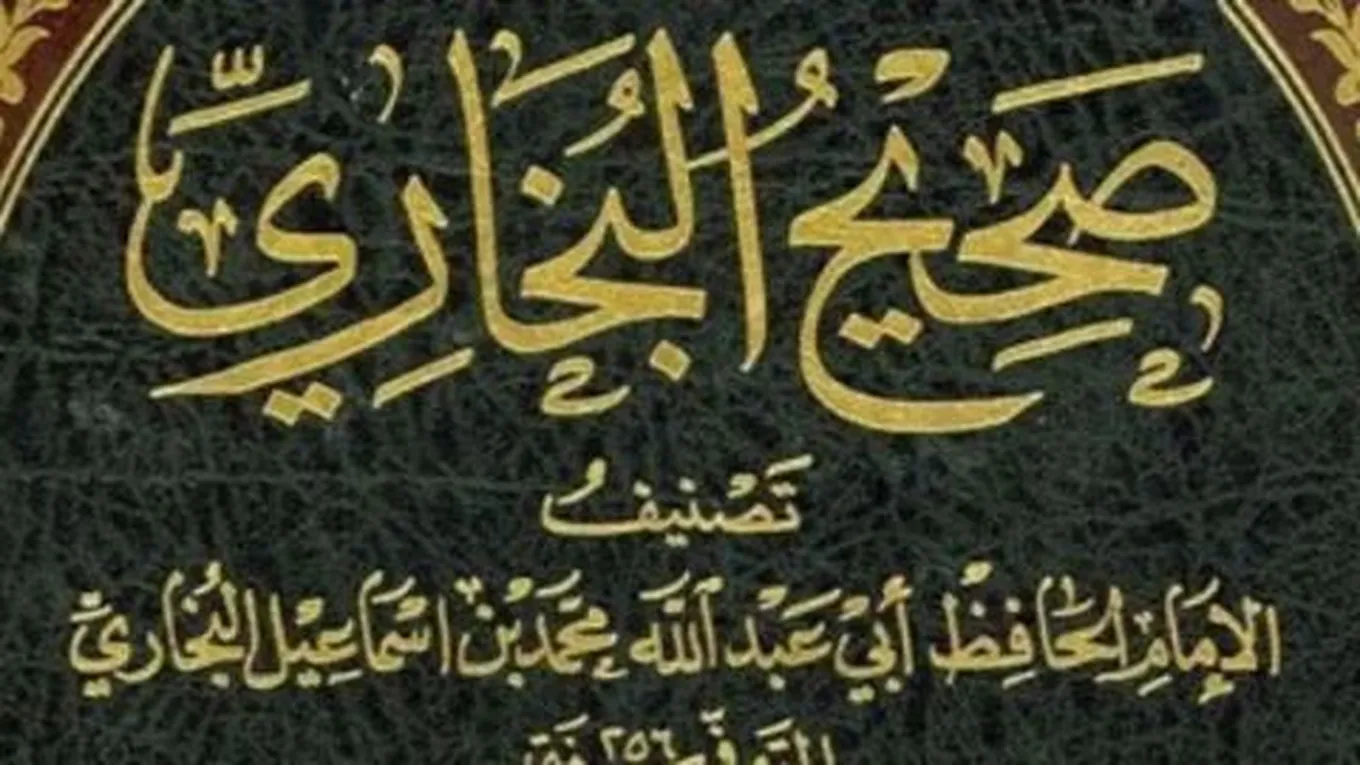 صَحِيحُ الْبُخَارِيِّ
تَصْنِيفُ
الإِمَامِ الْحَافِظِ أَبِيْ عَبْدِ اللَّهِ مُحَمَّد بْن اسْمَاعِيْل الْبُخَارِيِّ
المتَوَفَّى ٢٥٦